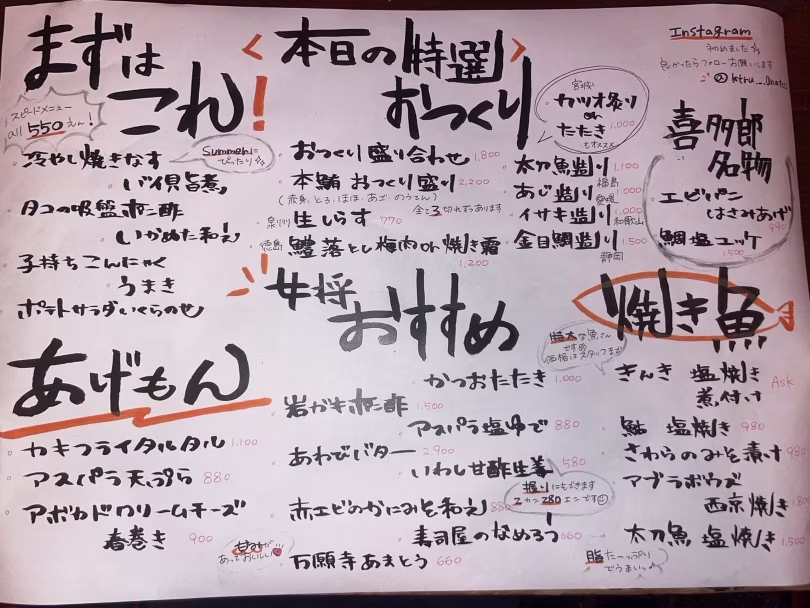 まずは
これ!
スピードメニュー
all 550えん!
冷やし焼きなす
Summerに
ぴったり
バイ貝旨煮
タコの吸盤ポン酢
いかめた和え
子持ちこんにゃく
うまき
ポテトサラダいくらのせ
〈本日の特選〉
おつくり
宮城
カツオ炙り
or
たたき 1,000
もオススメ
おつくり盛り合わせ 1,800
本鮪 おつくり盛り 2,200
(赤身、とろ、ほほ、あご、のうてん)
全て3切れずつあります
泉州 生しらす 770
徳島 鱧落とし梅肉or焼き霜
1,200
太刀魚造り 1,100
福島
あじ造り 1,000
愛媛
イサキ造り 1,000
和歌山
金目鯛造り 1,500
静岡
Instagram
初めました
良かったらフォローお願いします
喜多郎
名物
エビパン
はさみあげ
990
鯛塩ユッケ
1,500
あげもん
カキフライタルタル 1,100
アスパラ天ぷら 880
アボカドクリームチーズ
春巻き 900
女将
おすすめ
かつおたたき 1,000
岩ガキポン酢 1,500
アスパラ塩ゆで 880
あわびバター 2,900
いわし甘酢生姜 580
握りにもできます
2カン280エンです
赤エビのかにみそ和え 880
寿司屋のなめろう 660
甘みが
あっておいしい
万願寺あまとう 660
焼き魚
特大な魚さん
です
価格はスタッフまで
きんき 塩焼き
煮付け
Ask
鮎 塩焼き 980
さわらのみそ漬け 980
アブラボウズ
西京焼き 1,800
太刀魚 塩焼き 1,500
脂たーっぷり
でうまいっ